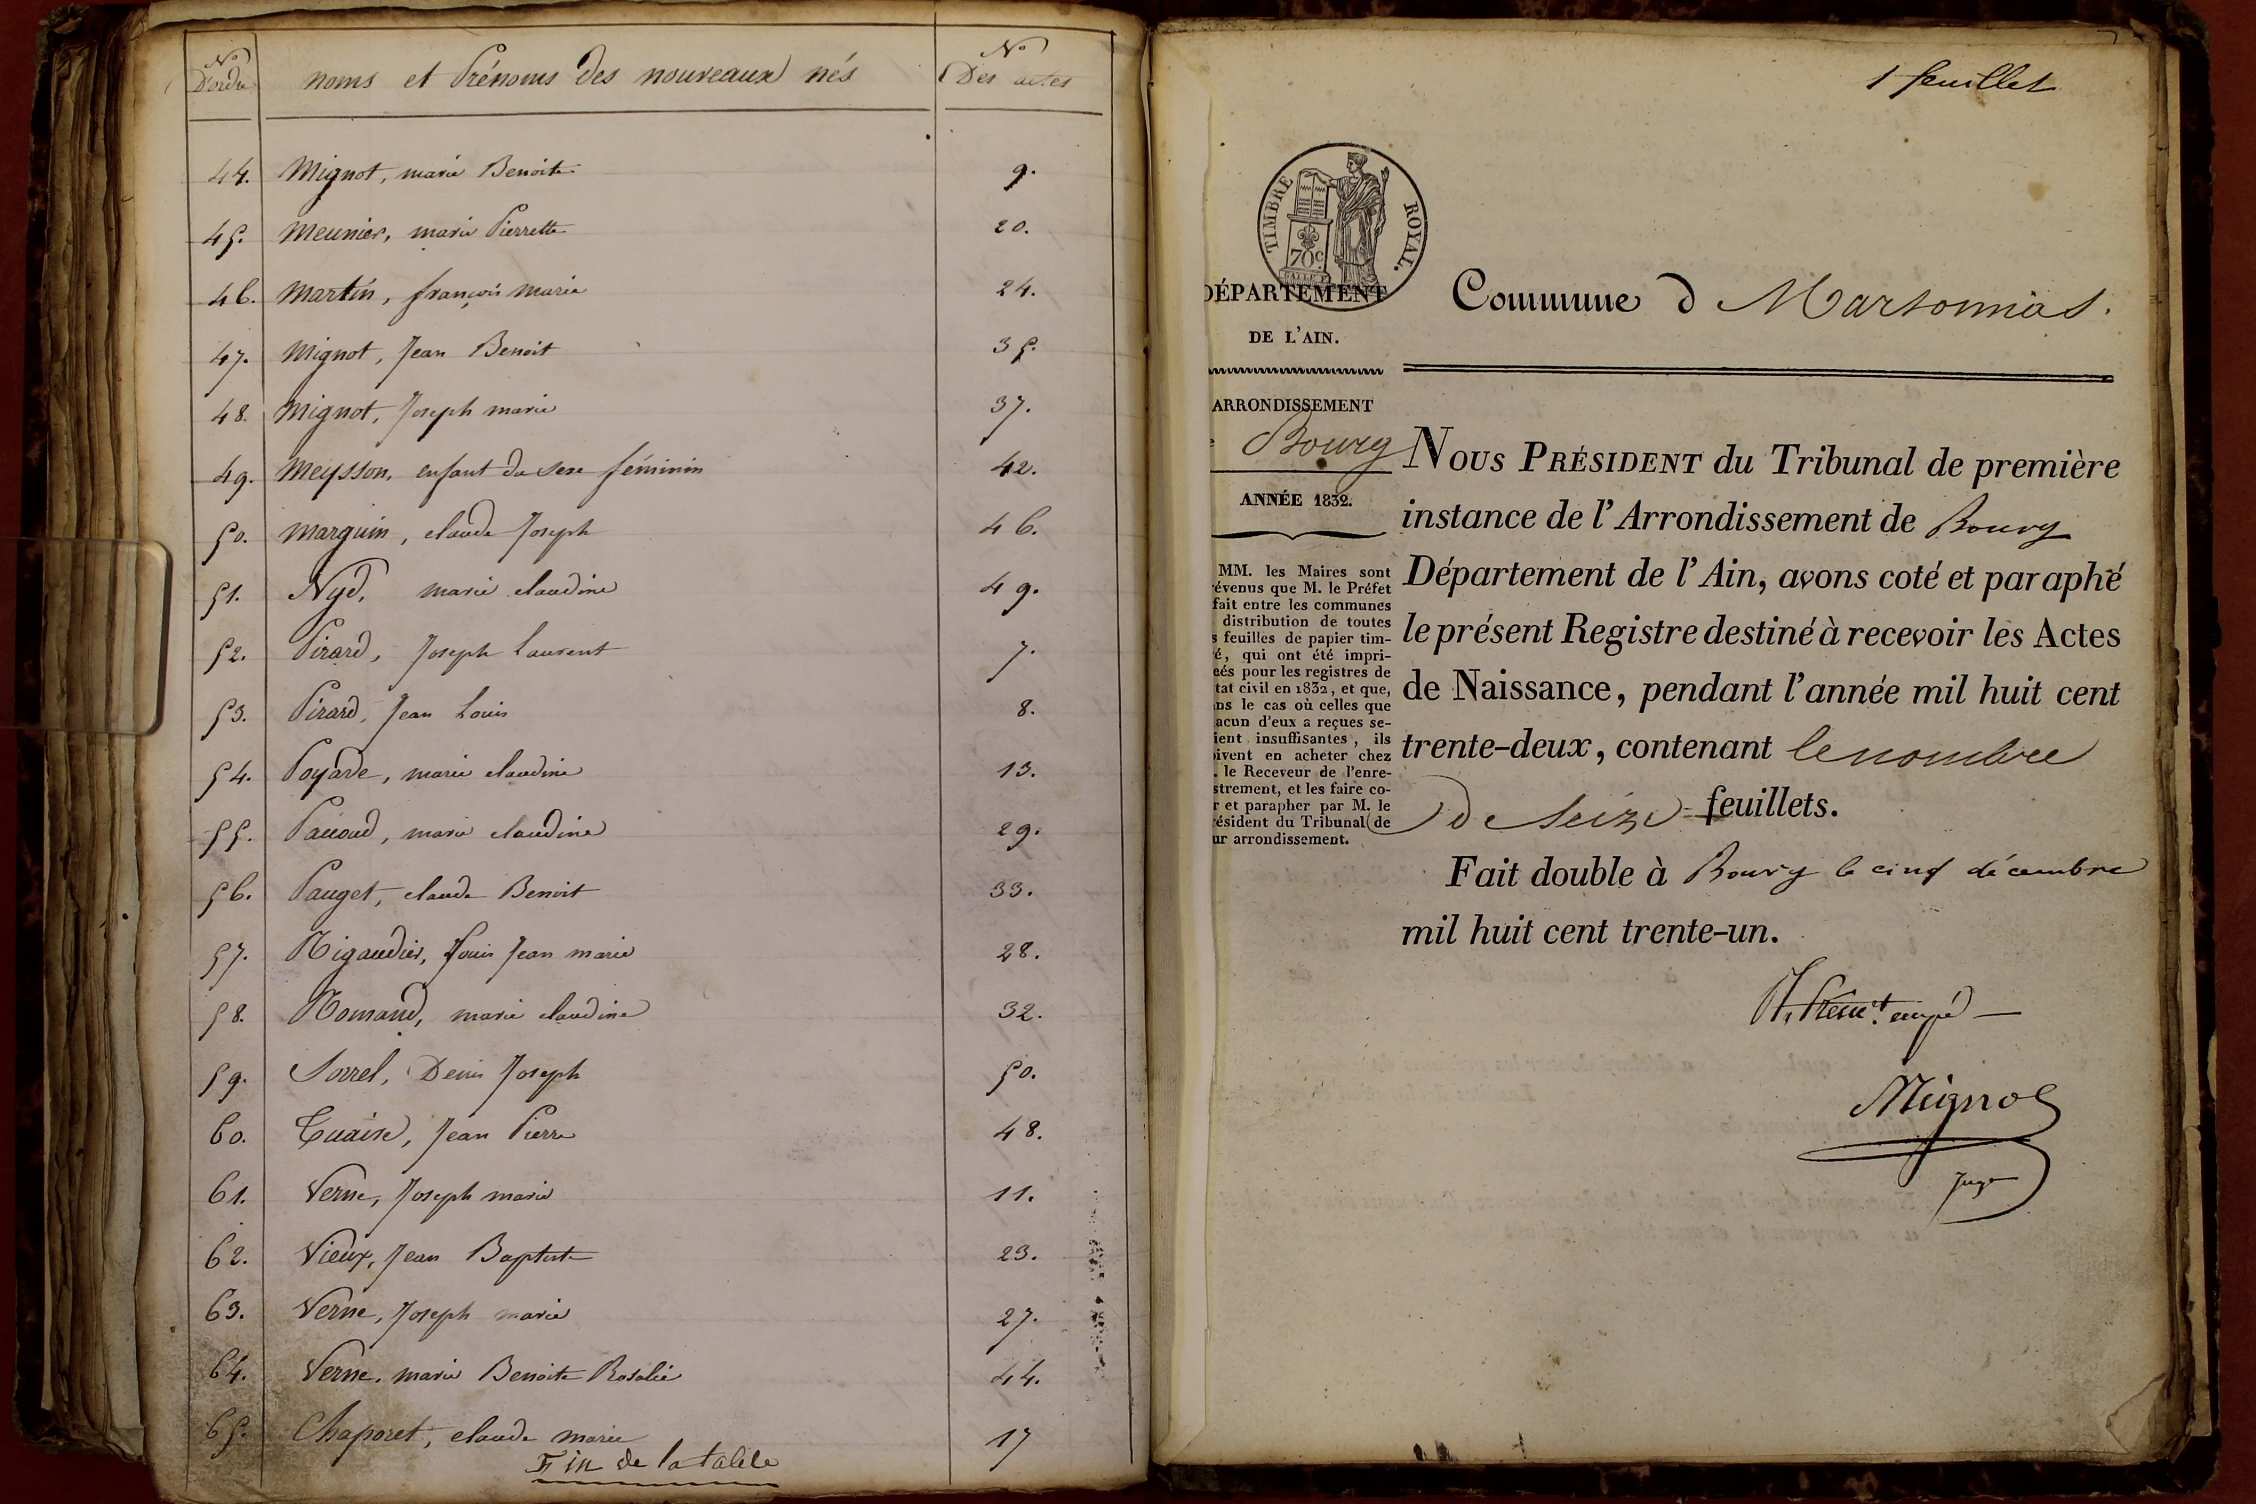 No D'ordre noms et Prénoms des nouveaux nés No Des actes
44. Mignot, marie Benoite 9.
45. Meunier, marie Pierrette 20.
46. Martin, françois marie 24.
47. Mignot, Jean Benoit 35.
48. Mignot, Joseph marie 37.
49. Meysson, enfant du sexe féminin 42.
50. Marguin, claude Joseph 46.
51. Nyd, marie claudine 49.
52. Pirard, Joseph Laurent 7.
53. Pirard, Jean Louis 8.
54. Poyarde, marie claudine 13.
55. marie claudine 29.
56. Pauget, claude Benoit 33.
57. Rigaudier, Louis Jean marie 28.
58. Romand, marie claudine 32.
59. Sorrel, Denis Joseph 50.
60. Tuaise, Jean Pierre 48.
61. Verne, Joseph marie 11.
62. Vieux, Jean Baptiste 23.
63. Verne, Joseph marie 27.
64. Verne, marie Benoite Rosalie 44.
65. Chaporet, claude marie 17
Fin de la table
1 feuillet
TIMBRE ROYAL.
70c
DÉPARTEMENT
DE L'AIN.
Commune d Marsonnas.
ARRONDISSEMENT
Bourg
ANNÉE 1832.
MM. les Maires sont
révenus que M. le Préfet
fait entre les communes
distribution de toutes
s feuilles de papier tim-
é, qui ont été impri-
eés pour les registres de
tat civil en 1832, et que,
ns le cas où celles que
acun d'eux a reçues se-
ient insuffisantes, ils
oivent en acheter chez
. le Receveur de l'enre-
strement, et les faire co-
r et parapher par M. le
résident du Tribunal de
ur arrondissement.
Nous Président du Tribunal de première
instance de l'Arrondissement de Bourg
Département de l'Ain, avons coté et paraphé
le présent Registre destiné à recevoir les Actes
de Naissance, pendant l'année mil huit cent
trente-deux, contenant le nombre
de Seize feuillets.
Fait double à Bourg le cinq décembre
mil huit cent trente-un.
Mignot
Juge